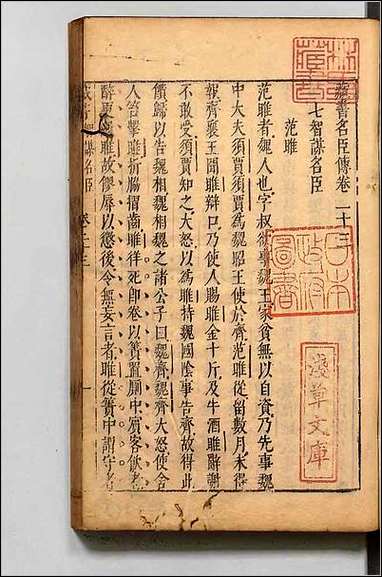 藏書名臣傳卷二十三
七智謀名臣
范雎
范雎者魏人也字叔欲事魏王家貧無以自資乃先事魏
中大夫須賈須賈為魏昭王使於齊范雎從留數月未得
報齊襄王聞雎辯口乃使人賜雎金十斤及牛酒雎辭謝
不敢受須賈知之大怒以為雎持魏國陰事告齊故得此
饋歸以告魏相魏相魏之諸公子曰魏齊魏齊大怒使舍
人笞擊雎折脇摺齒雎佯死即卷以簀置廁中賓客飲者
醉更溺雎故僇辱以懲後令無妄言者雎從簀中謂守者
智謀名臣
卷二十三
一
日本
政府
圖書
淺草文庫